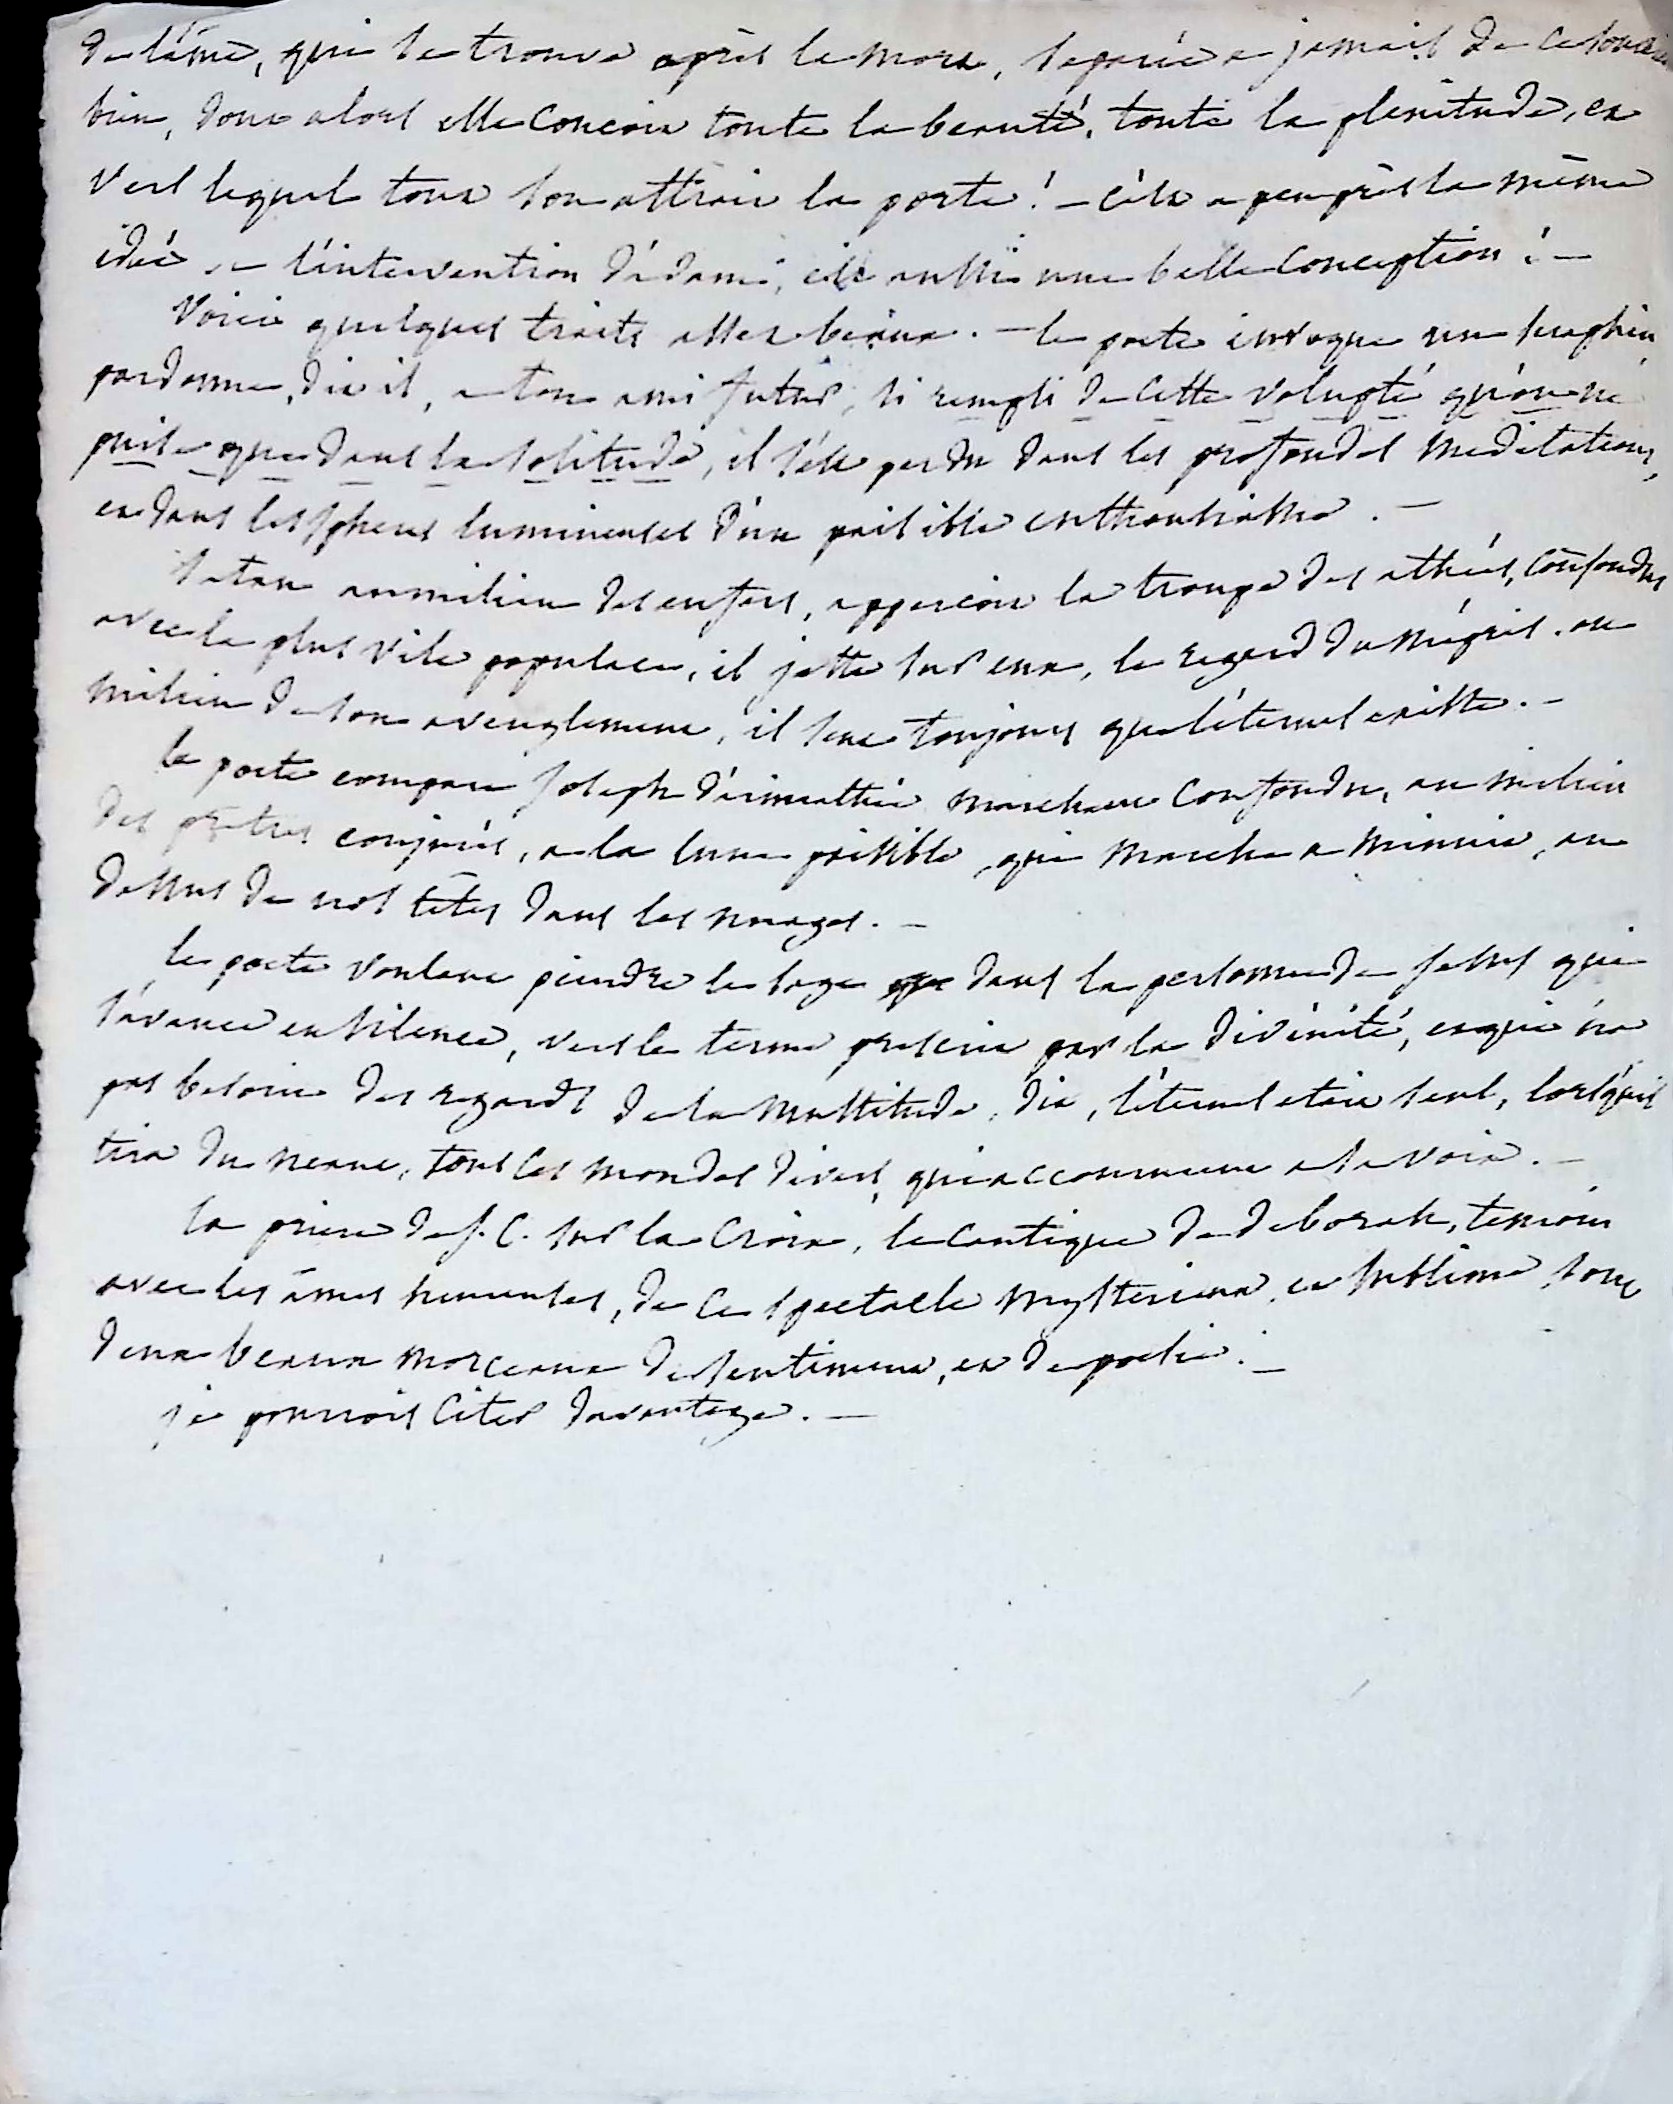 de l'âme, qui se trouve après la mort, separée a jamais de ce souverain
bien, dont alors elle concoit toute la beauté, toute la plenitude, et
vers lequel tout son attrait la porte! - c'est a peu près la même
idée l'intervention d'adami, est aussi une belle conception! -
Voici quelques traits assez beaux. - le poete invoque un seraphin,
pardonne, dit il, a ton ami futur, si rempli de cette volupté qu'on ne
puise que dans la solitude, il s'est perdu dans les profondes meditations,
et dans les spheres lumineuses d'un paisible enthousiasme. -
Satan au milieu des enfers, appercoit la troupe des athées, confondus
avec la plus vile populace, il jette sur eux, le regard du mépris. au
milieu de son aveuglement, il sent toujours que l'éternel existe. -
le poete compare joseph d'arimathie marchant confondu, au milieu
des pretres conjurés, a la lune paisible, qui marche a minuit, au
dessus de nos têtes dans les nuages. -
le poete voulant peindre le sage dans la personne de jesus qui
s'avance en silence, vers le terme prescrit par la divinité, et qui n'a
pas besoin des regards de la multitude, dit, l'éternel etait seul, lorsqu'il
tira du neant, tous ces mondes divers, qui accoururent a sa voix. -
la priere de j. C. sur la Croix, le cantique de deborah, temoin
avec les âmes humaines, de ce spectacle mysterieux et sublime, sont
deux beaux morceaux de sentiment, et de poesie. -
je pourrois citer davantage. -